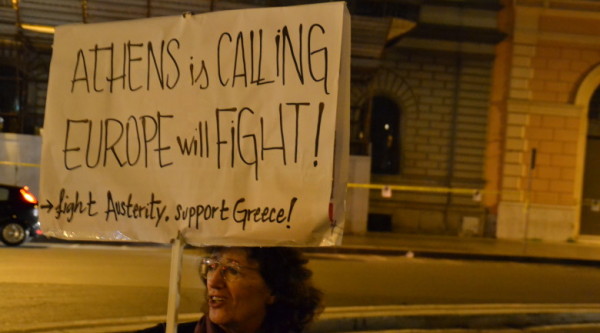 ATHENS is CALLING
EUROPE will FIGHT!
→ fight Austerity. support Greece!